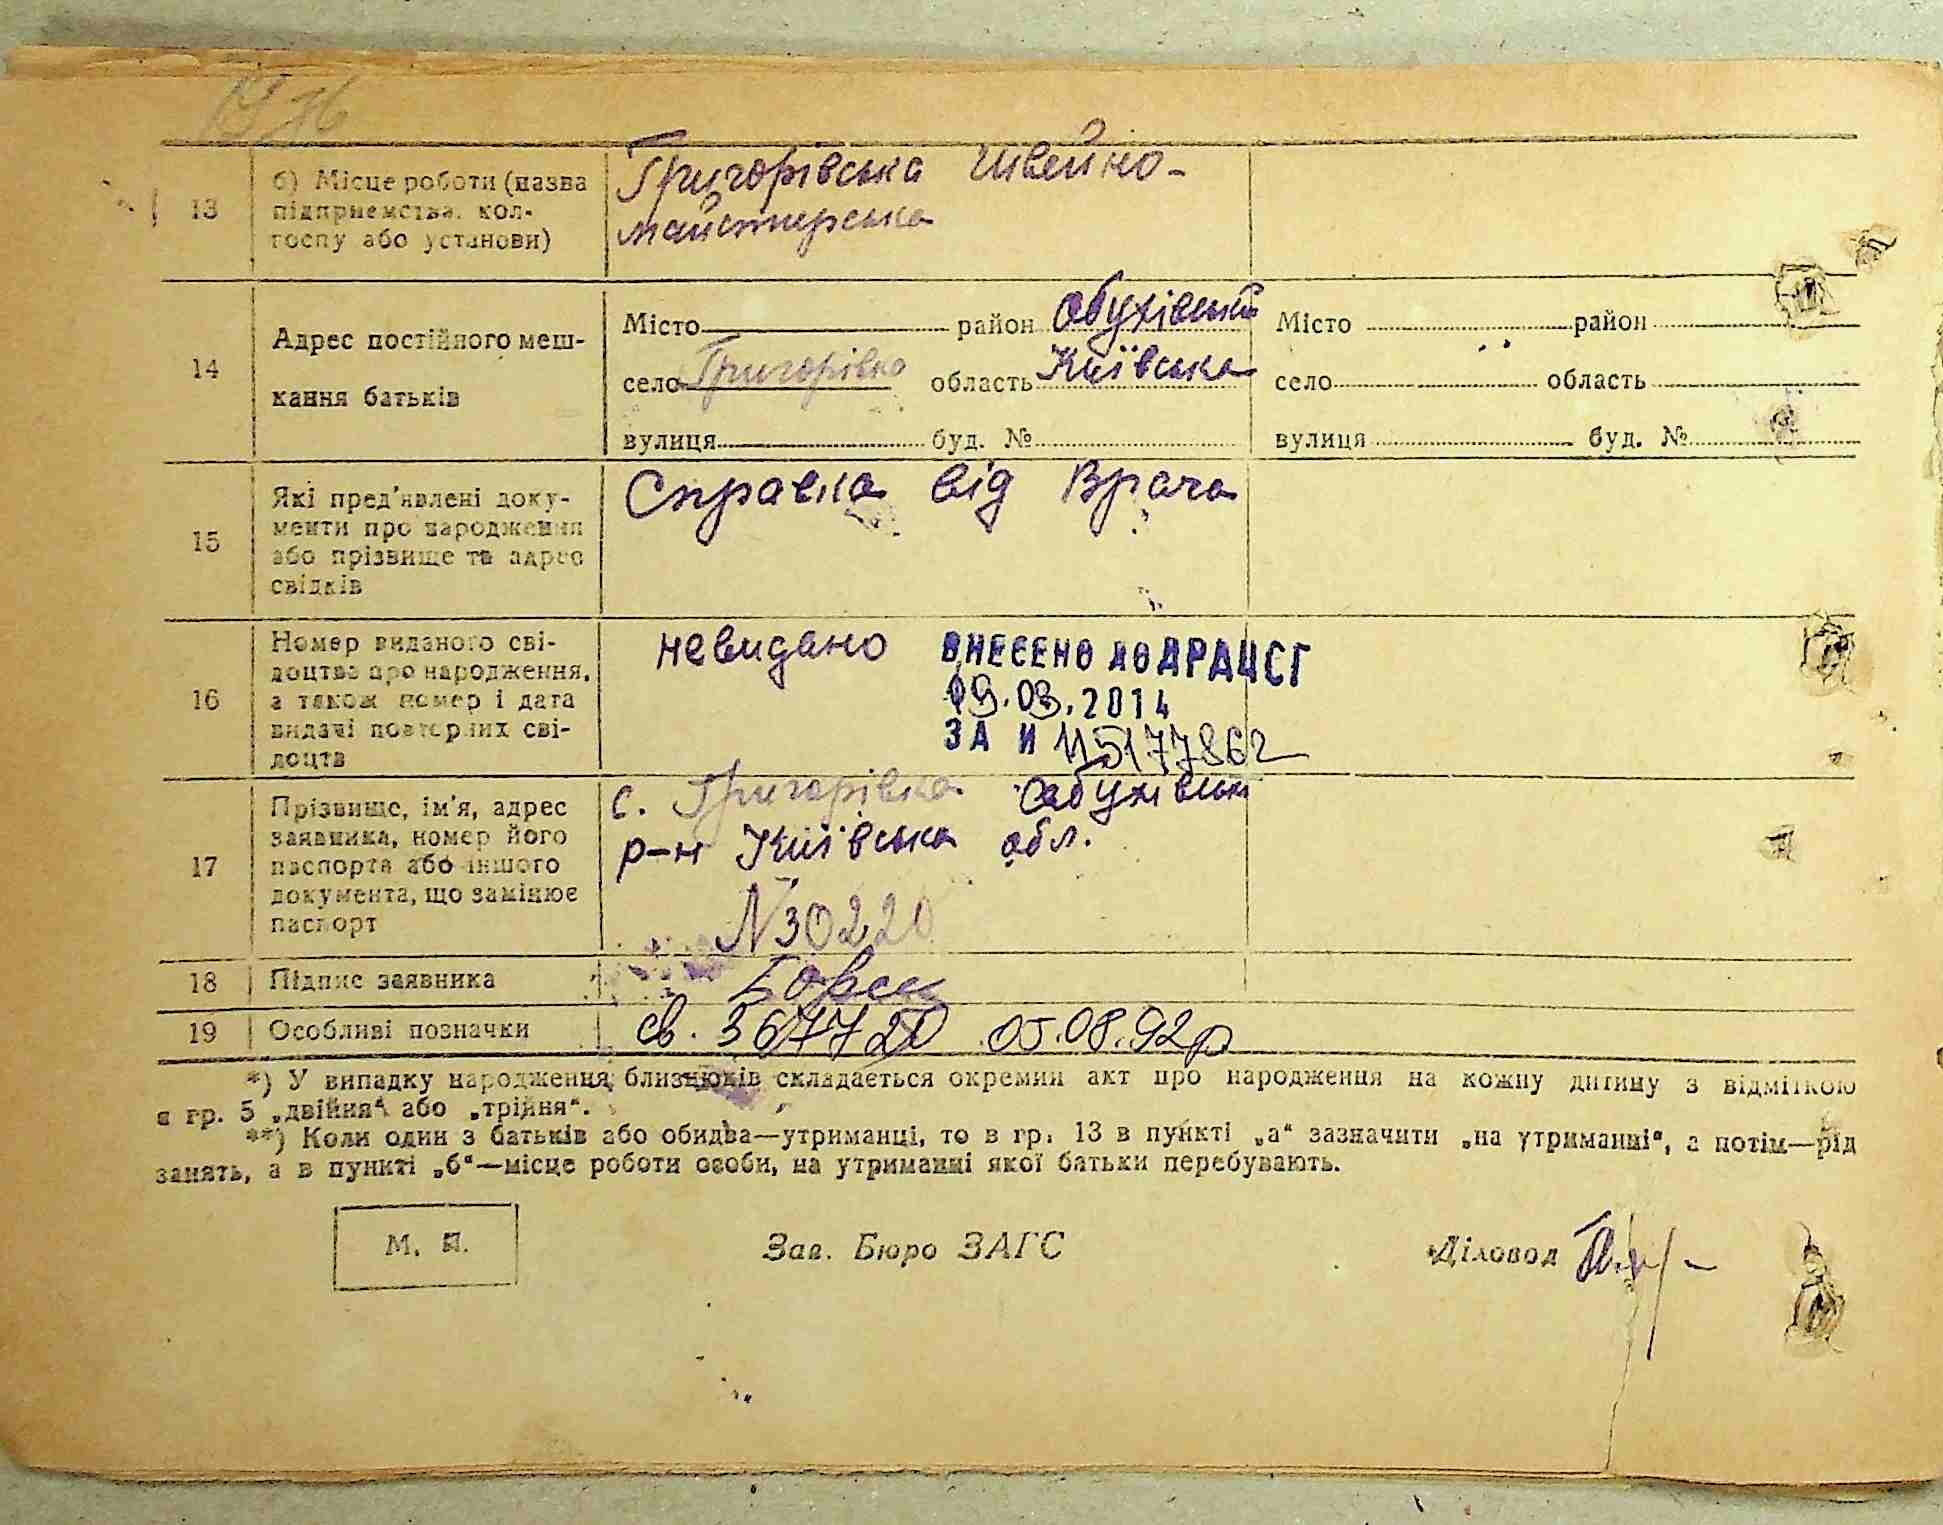 13
б) Місце роботи (назва
підприємства, кол-
госпу або установи)
Григорівська швейно-
майстерська
14
Адрес постійного меш-
кання батьків
Місто район Обухівський
село Григорівка область Київська
вулиця буд. №
Місто район
село область
вулиця буд. №
15
Які пред'явлені доку-
менти про народження
або прізвище та адрес
свідків
Справка від Врача
16
Номер виданого сві-
доцтва про народження,
а також номер і дата
видачі повторних сві-
доцтв
невидано
ВНЕСЕНО ДО ДРАЦСГ
09.03.2014
ЗА И 115177862
17
Прізвище, ім'я, адрес
заявника, номер його
паспорта або іншого
документа, що замінює
паспорт
с. Григорівка Обухівські
р-н Київська обл.
N30220
18
Підпис заявника
19
Особливі позначки
св. 367720 05.08.92р
*) У випадку народження близнюків складається окремий акт про народження на кожну дитину з відміткою
в гр. 5 „двійня“ або „трійня“.
**) Коли один з батьків або обидва—утриманці, то в гр. 13 в пункті „а“ зазначити „на утриманні“, а потім—рід
занять, а в пункті „б“—місце роботи особи, на утриманні якої батьки перебувають.
М. П.
Зав. Бюро ЗАГС
Діловод